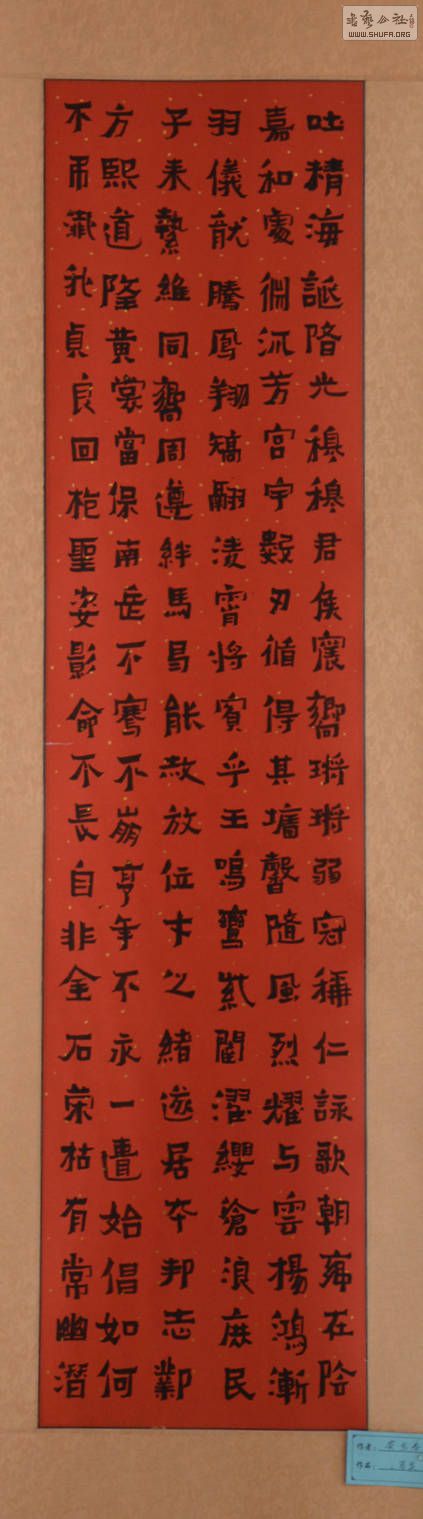 吐精海誕陼光穆穆君侯震嚮鏘鏘弱冠稱仁詠歌朝鄉在陰
嘉和處淵流芳宮宇數刃循得其墻馨隨風烈耀与雲楊鴻漸
羽儀龍騰鳳翔矯翮淩霄將賓乎王鳴鸞紫闥濯纓滄浪庶民
子來縶維同嚮周遵絆馬曷能赦放位才之緒遂居本邦志鄴
方熙道隆黃裳當保南岳不騫不崩享年不永一遭始倡如何
不弔殲我貞良回枹聖姿影命不長自非金石荣枯有常幽潛
書藝公社
WWW.SHUFA.ORG
作者：
作品：